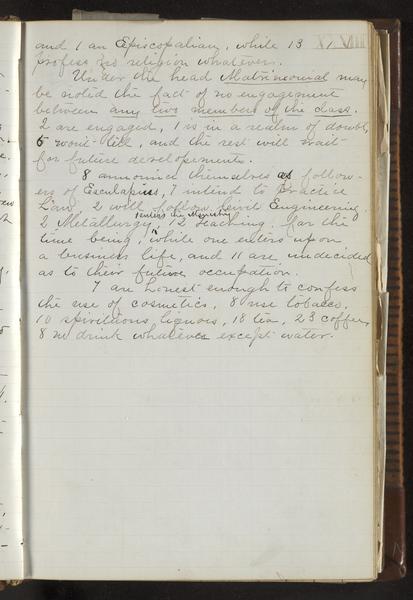 XVIII
and 1 an Episcopalian, while 13
profess no religion whatever.
Under the head Matrimonial may
be noted the fact of no engagement
between any two members of the class.
2 are engaged, 1 is in a realm of doubt,
5 won't tell, and the rest will wait
for future developements.
8 announced themselves as follow-
ers of Esculapius, 7 intend to practice
Law, 2 will follow Civil Engineering
1 enters the Ministry
2 Metallurgy, 12 teaching for the
time being, while one enters upon
a business life, and 11 are undecided
as to their future occupation.
7 are honest enough to confess
the use of cosmetics, 8 use tobacco,
10 spirituous liquors, 18 tea, 23 coffee,
8 no drink whatever except water.